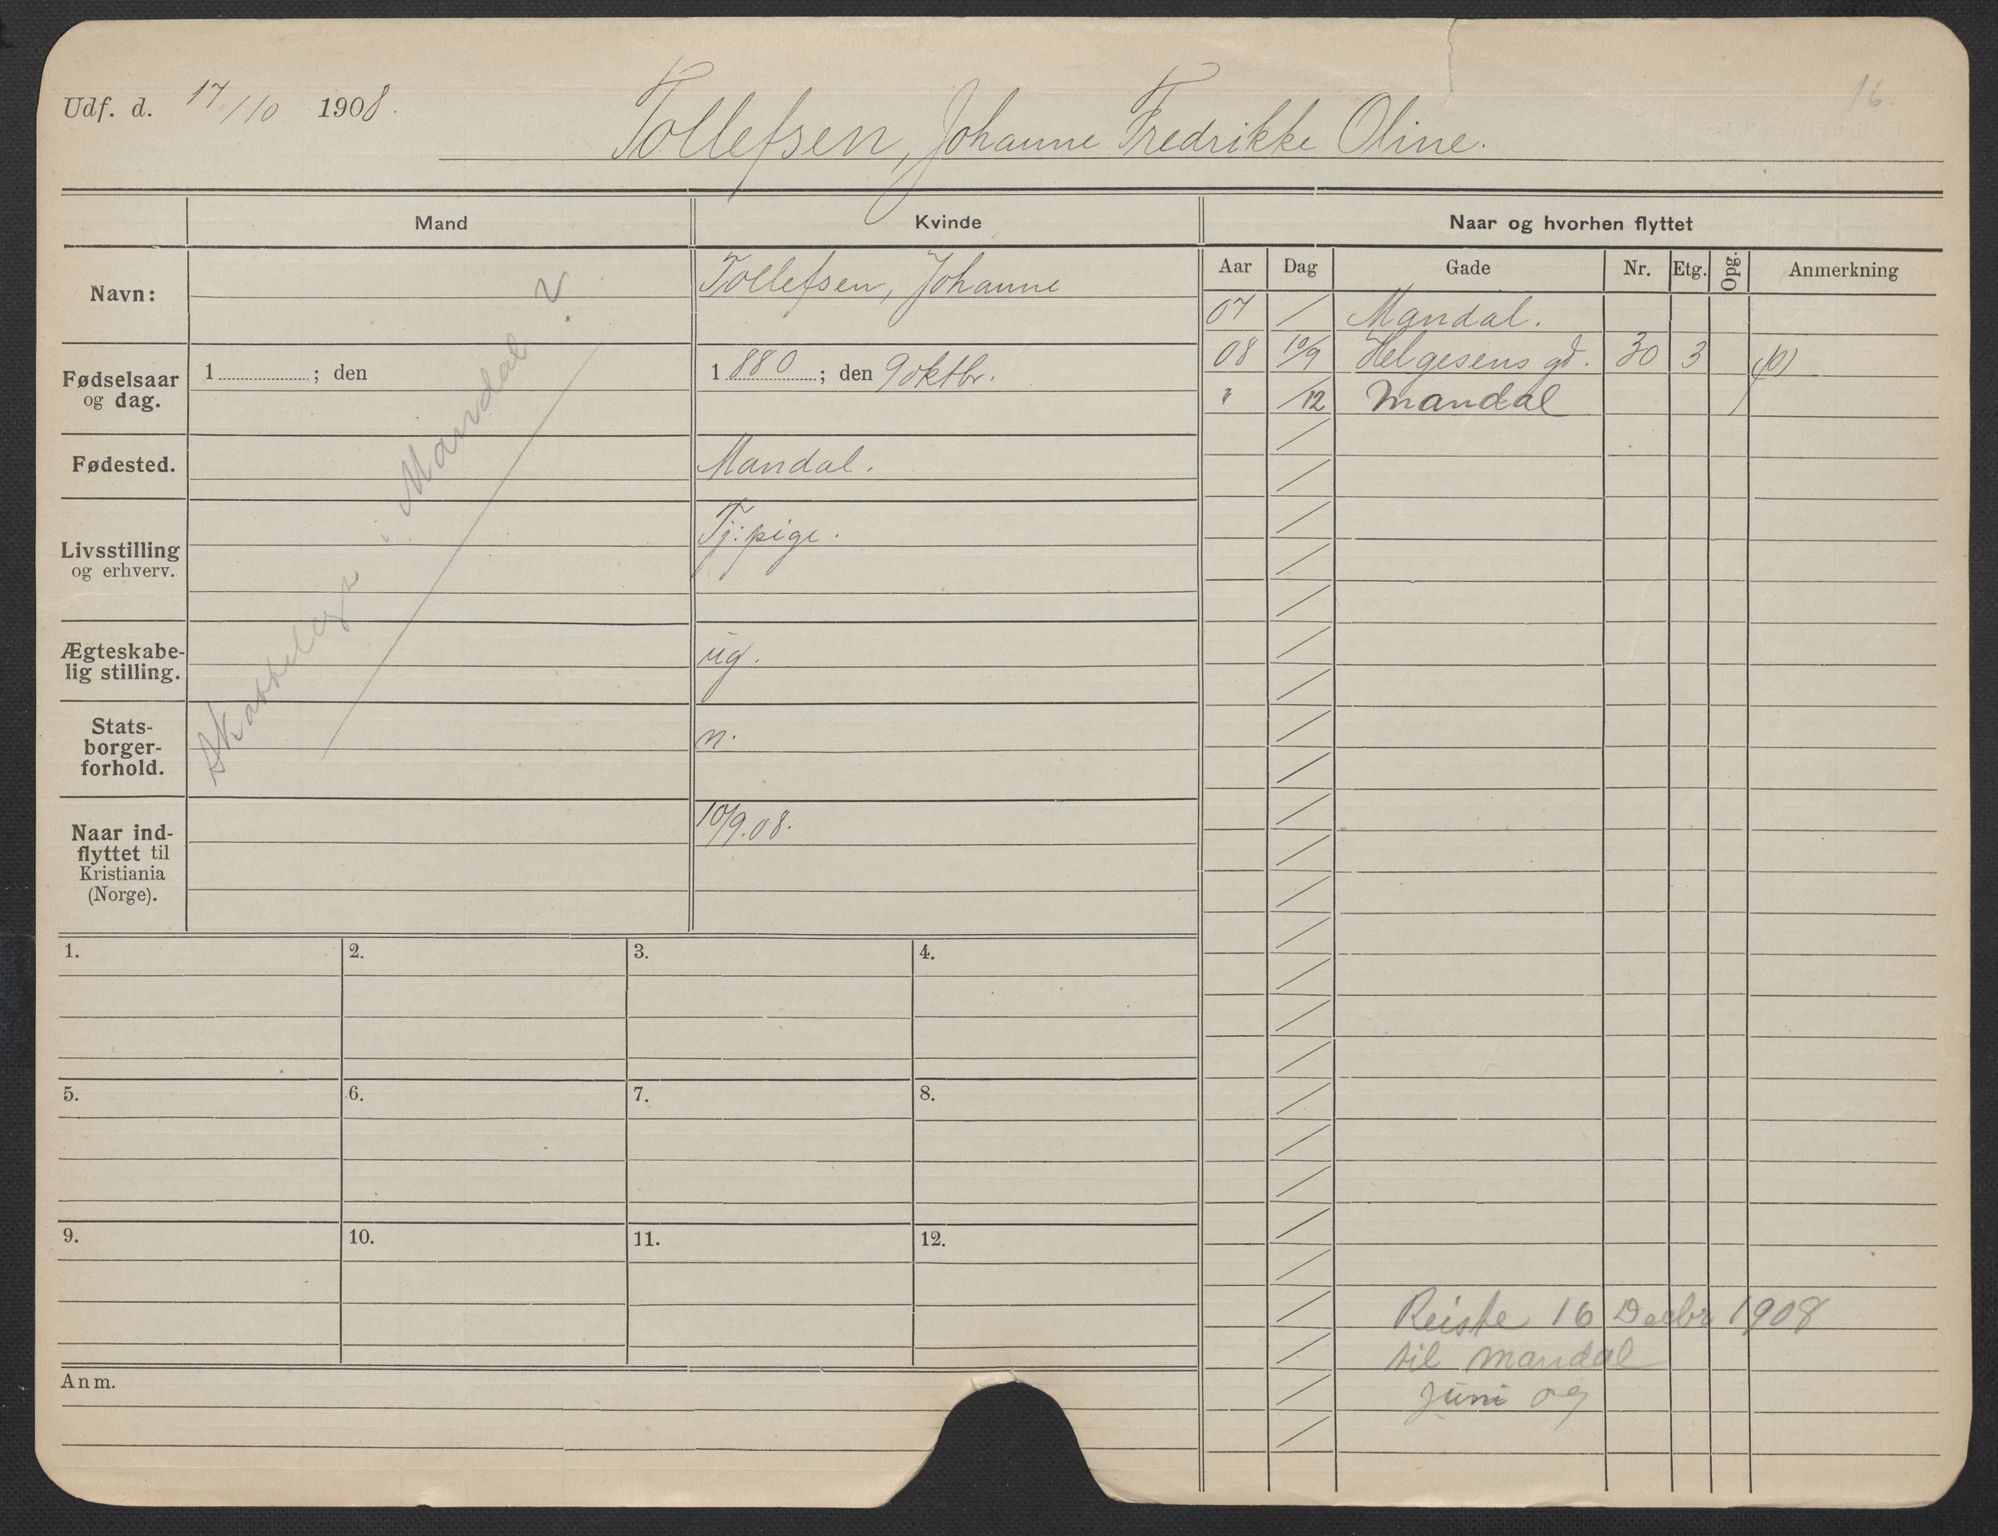 Udf. d. 17/10 1908.
16.
Tollefsen, Johanne Fredrikke Oline.
Mand
Kvinde
Naar og hvorhen flyttet
Navn:
Tollefsen, Johanne
Fødselsaar
og dag.
1 ; den
1 880 ; den 9 oktbr.
Fødested.
Mandal.
Livsstilling
og erhverv.
Tj: pige.
Ægteskabe-
lig stilling.
ug.
Stats-
borger-
forhold.
n.
Naar ind-
flyttet til
Kristiania
(Norge).
10/9.08.
i Mandal ?
Aar Dag Gade Nr. Etg. Opg. Anmerkning
07 / Mandal.
08 10/9 Helgesens gd. 30 3
" /12 Mandal
1. 2. 3. 4.
5. 6. 7. 8.
9. 10. 11. 12.
Anm.
Reiste 16 Decbr 1908
til Mandal